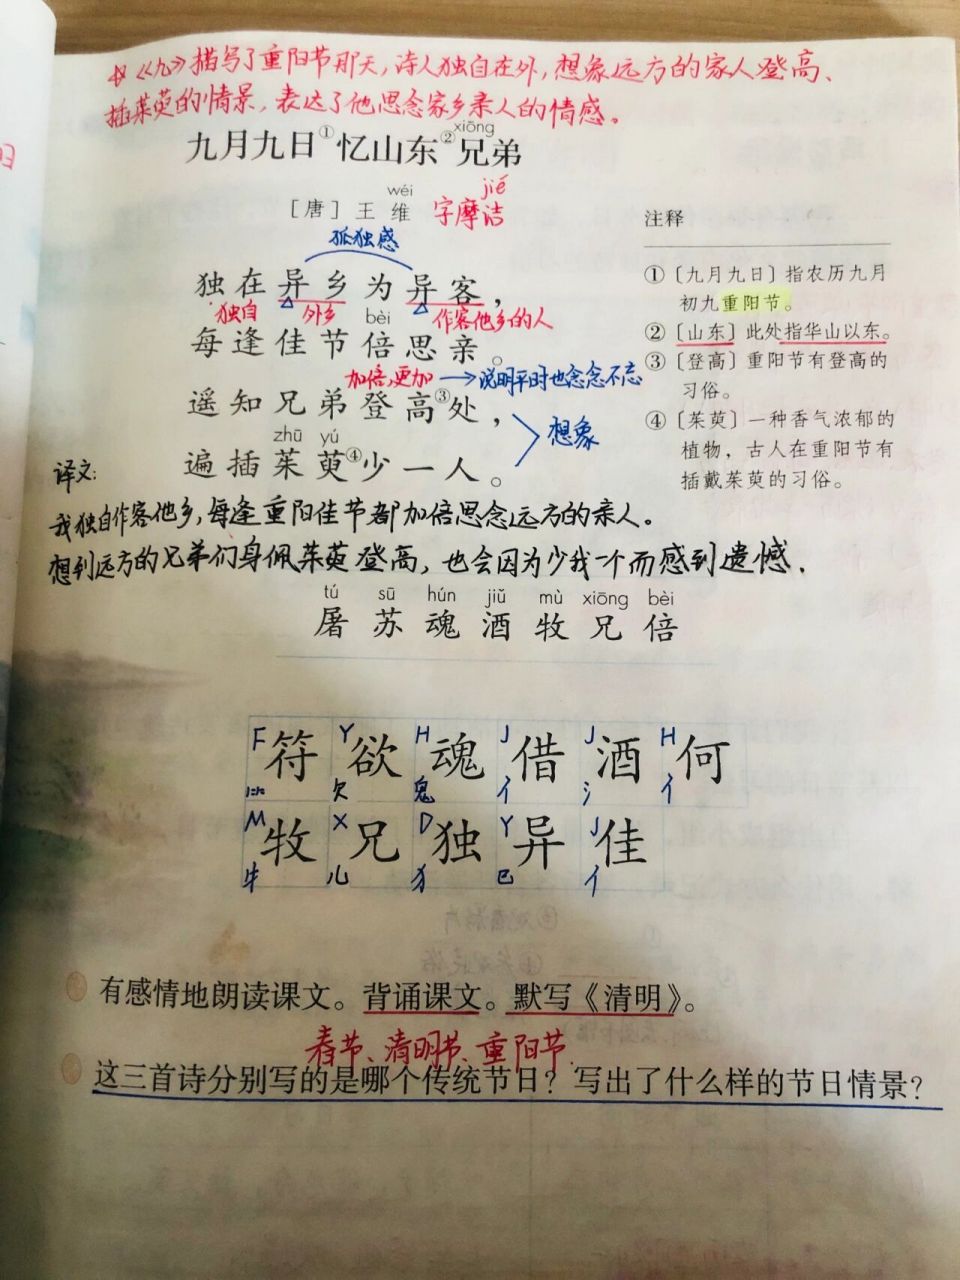 《九》描写了重阳节那天，诗人独自在外，想象远方的家人登高、
插茱萸的情景，表达了他思念家乡亲人的情感。
xiōng
九月九日①忆山东②兄弟
wéi jié
［唐］王维 字摩诘
孤独感
独在异乡为异客，
独自 外乡 作客他乡的人
bèi
每逢佳节倍思亲。
加倍,更加→说明平时也念念不忘
遥知兄弟登高③处，
想象
zhū yú
遍插茱萸④少一人。
注释
①〔九月九日〕指农历九月
初九重阳节。
②〔山东〕此处指华山以东。
③〔登高〕重阳节有登高的
习俗。
④〔茱萸〕一种香气浓郁的
植物，古人在重阳节有
插戴茱萸的习俗。
译文:
我独自作客他乡,每逢重阳佳节都加倍思念远方的亲人。
想到远方的兄弟们身佩茱萸登高，也会因为少我一个而感到遗憾.
tú sū hún jiǔ mù xiōng bèi
屠 苏 魂 酒 牧 兄 倍
F Y H J J H
符 欲 魂 借 酒 何
⺮ 欠 鬼 亻 氵 亻
M X D Y J
牧 兄 独 异 佳
牜 儿 犭 巳 亻
有感情地朗读课文。背诵课文。默写《清明》。
春节、清明节、重阳节.
这三首诗分别写的是哪个传统节日？写出了什么样的节日情景？